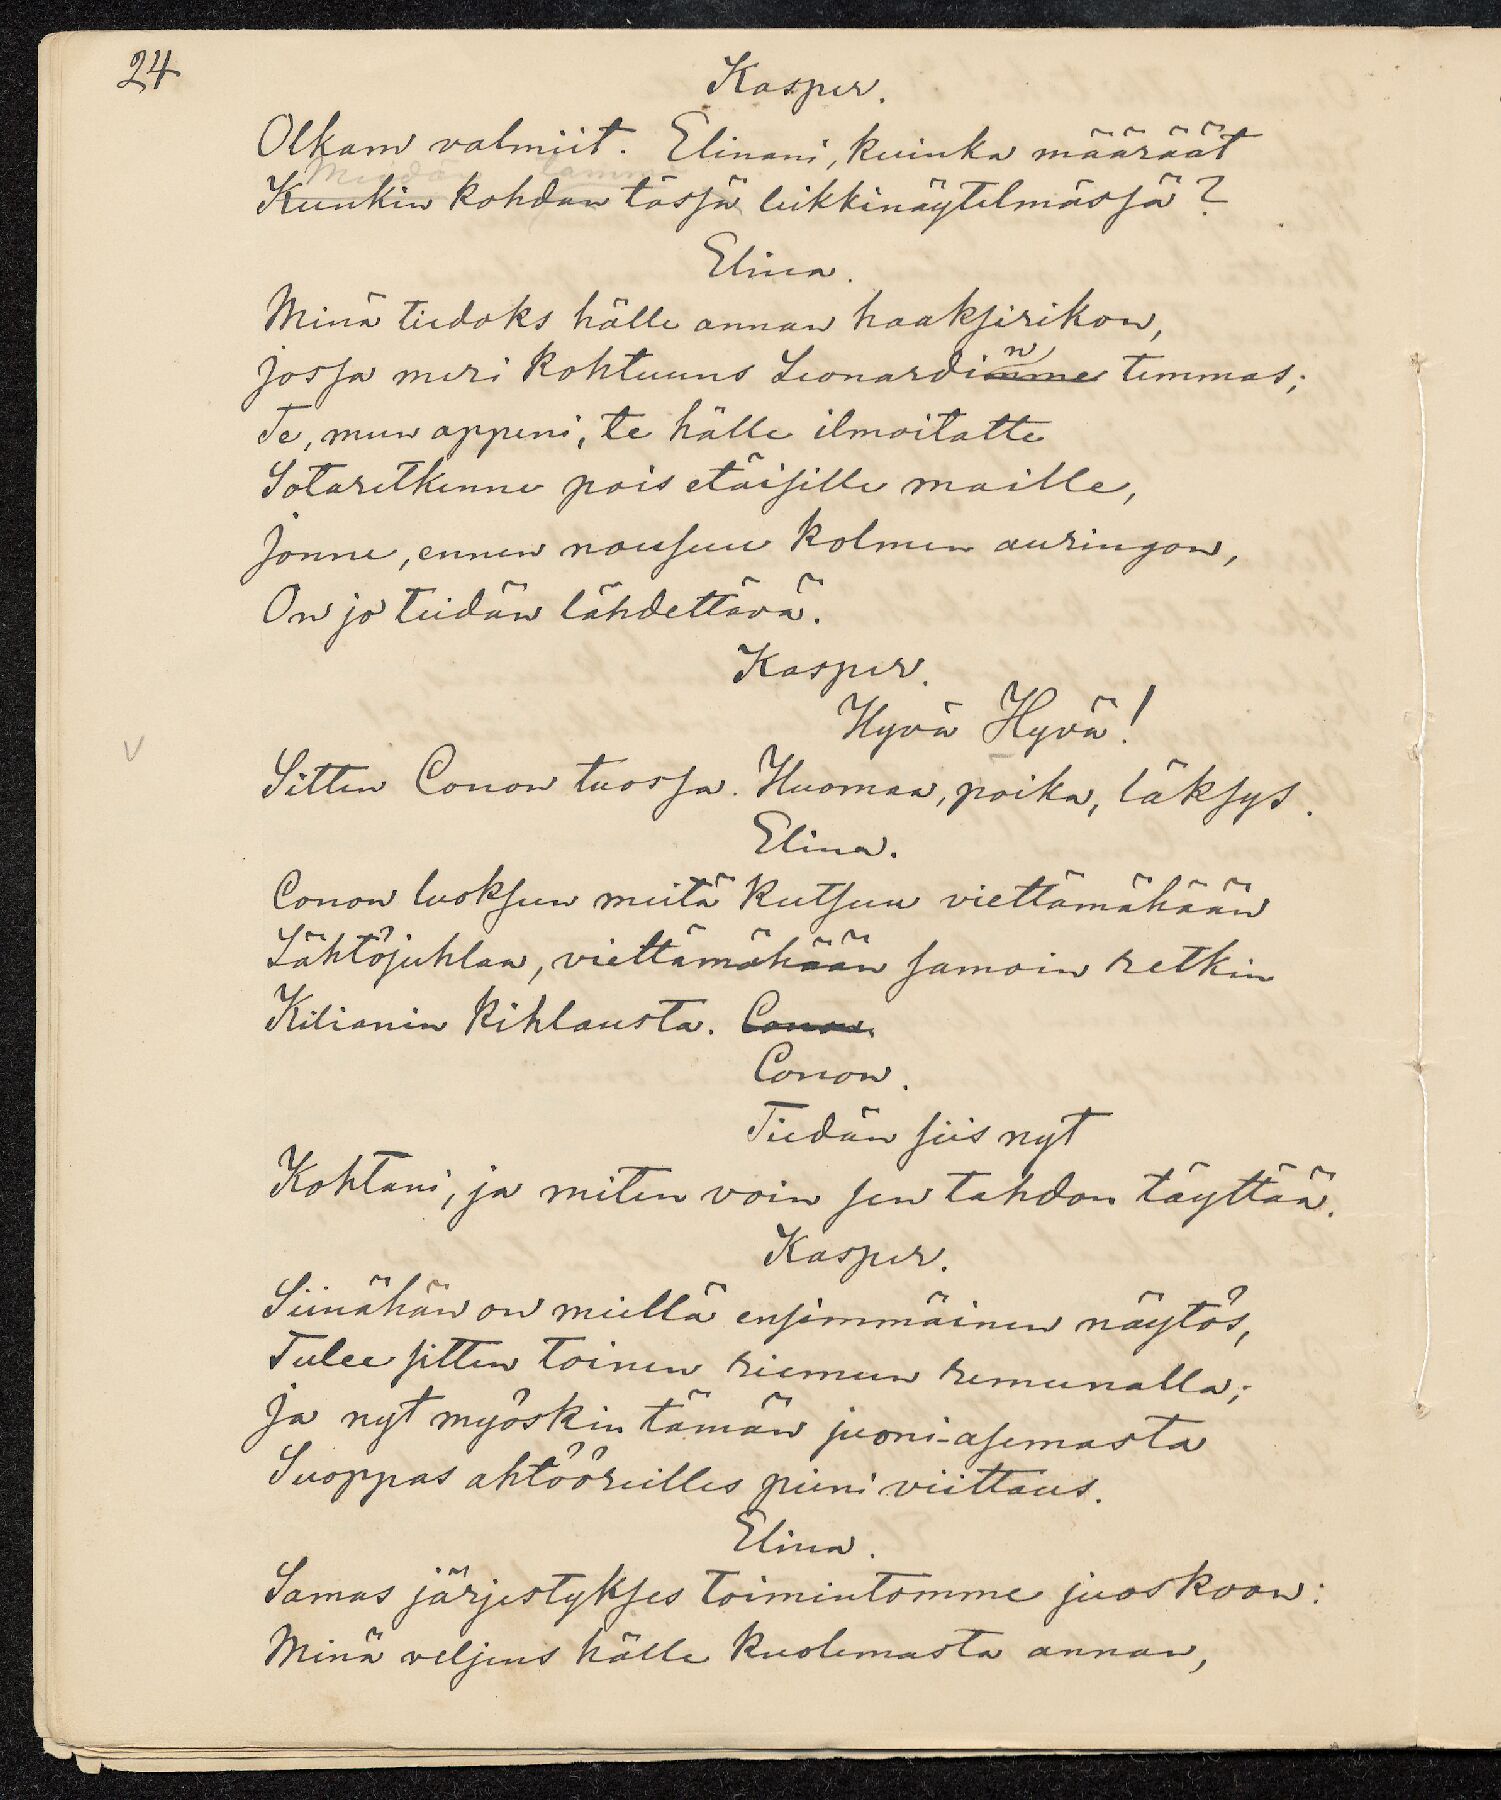 24
Kasper.
Olkam valmiit. Elinani, kuinka määräät
Meidän
Kunkin kohdan tässä leikkinäytelmässä?
Elina.
Minä tiedoks hälle annan haaksirikon,
Jossa meri kohtuuns Leonardinme temmas;
n
Te, mun appeni, te hälle ilmoitatte
Sotaretkenne pois etäisille maille,
Jonne, ennen nousuu kolmen auringon,
On jo teidän lähdettävä.
Kasper.
Hyvä Hyvä!
V
Sitten Conon tuossa. Huomaa, poika, läksys.
Elina.
Conon luoksun meitä kutsuu viettämähään
Lähtöjuhlaa, viettämähään samoin retkin
Kilianin kihlausta. Conon.
Conon.
Tiedän siis nyt
Kohtani, ja miten voin sen tahdon täyttää.
Kasper.
Siinähän on meillä ensimmäinen näytös,
Tulee sitten toinen riemun remunalla;
Ja nyt myöskin tämän juoni-asemasta
Suoppas ahtööreilles pieni viittaus.
Elina.
Samas järjestykses toimintomme juoskoon:
Minä veljens hälle kuolemasta annan,